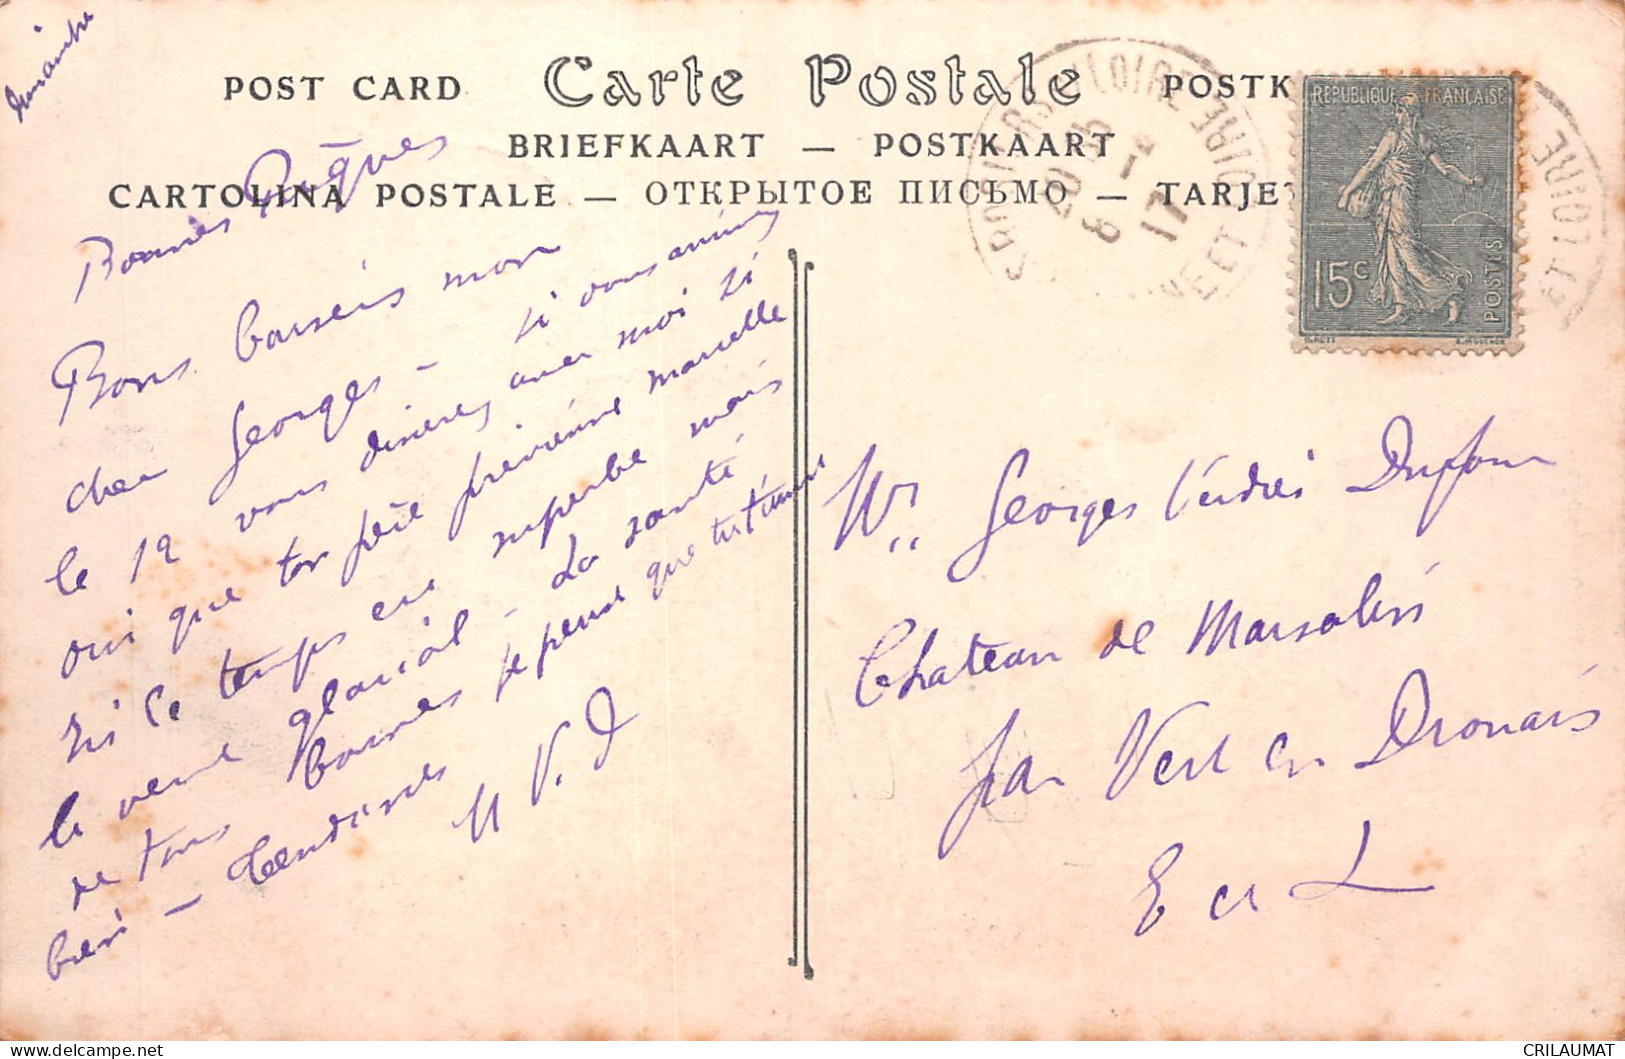 Dimanche
POST CARD Carte Postale POSTK
BRIEFKAART — POSTKAART
CARTOLINA POSTALE — ОТКРЫТОЕ ПИСЬМО — TARJE
REPUBLIQUE FRANÇAISE
15c
POSTES
20 15
8 - 4
17
LOIRE
ET LOIRE
Bonnes Pâques
Bons baisers mon
cher Georges - si vous
le 12 vous dinerez avec moi si
oui que ton père prévienne Marcelle
Ici le temps est superbe mais
le vent glacial - La santé
de tous bonne je pense que tu
bien - Tendresses
V. D
Mr. Georges Verdié Duffour
Château de Marsalin
par Vert en Drouais
E et L
CRILAUMAT